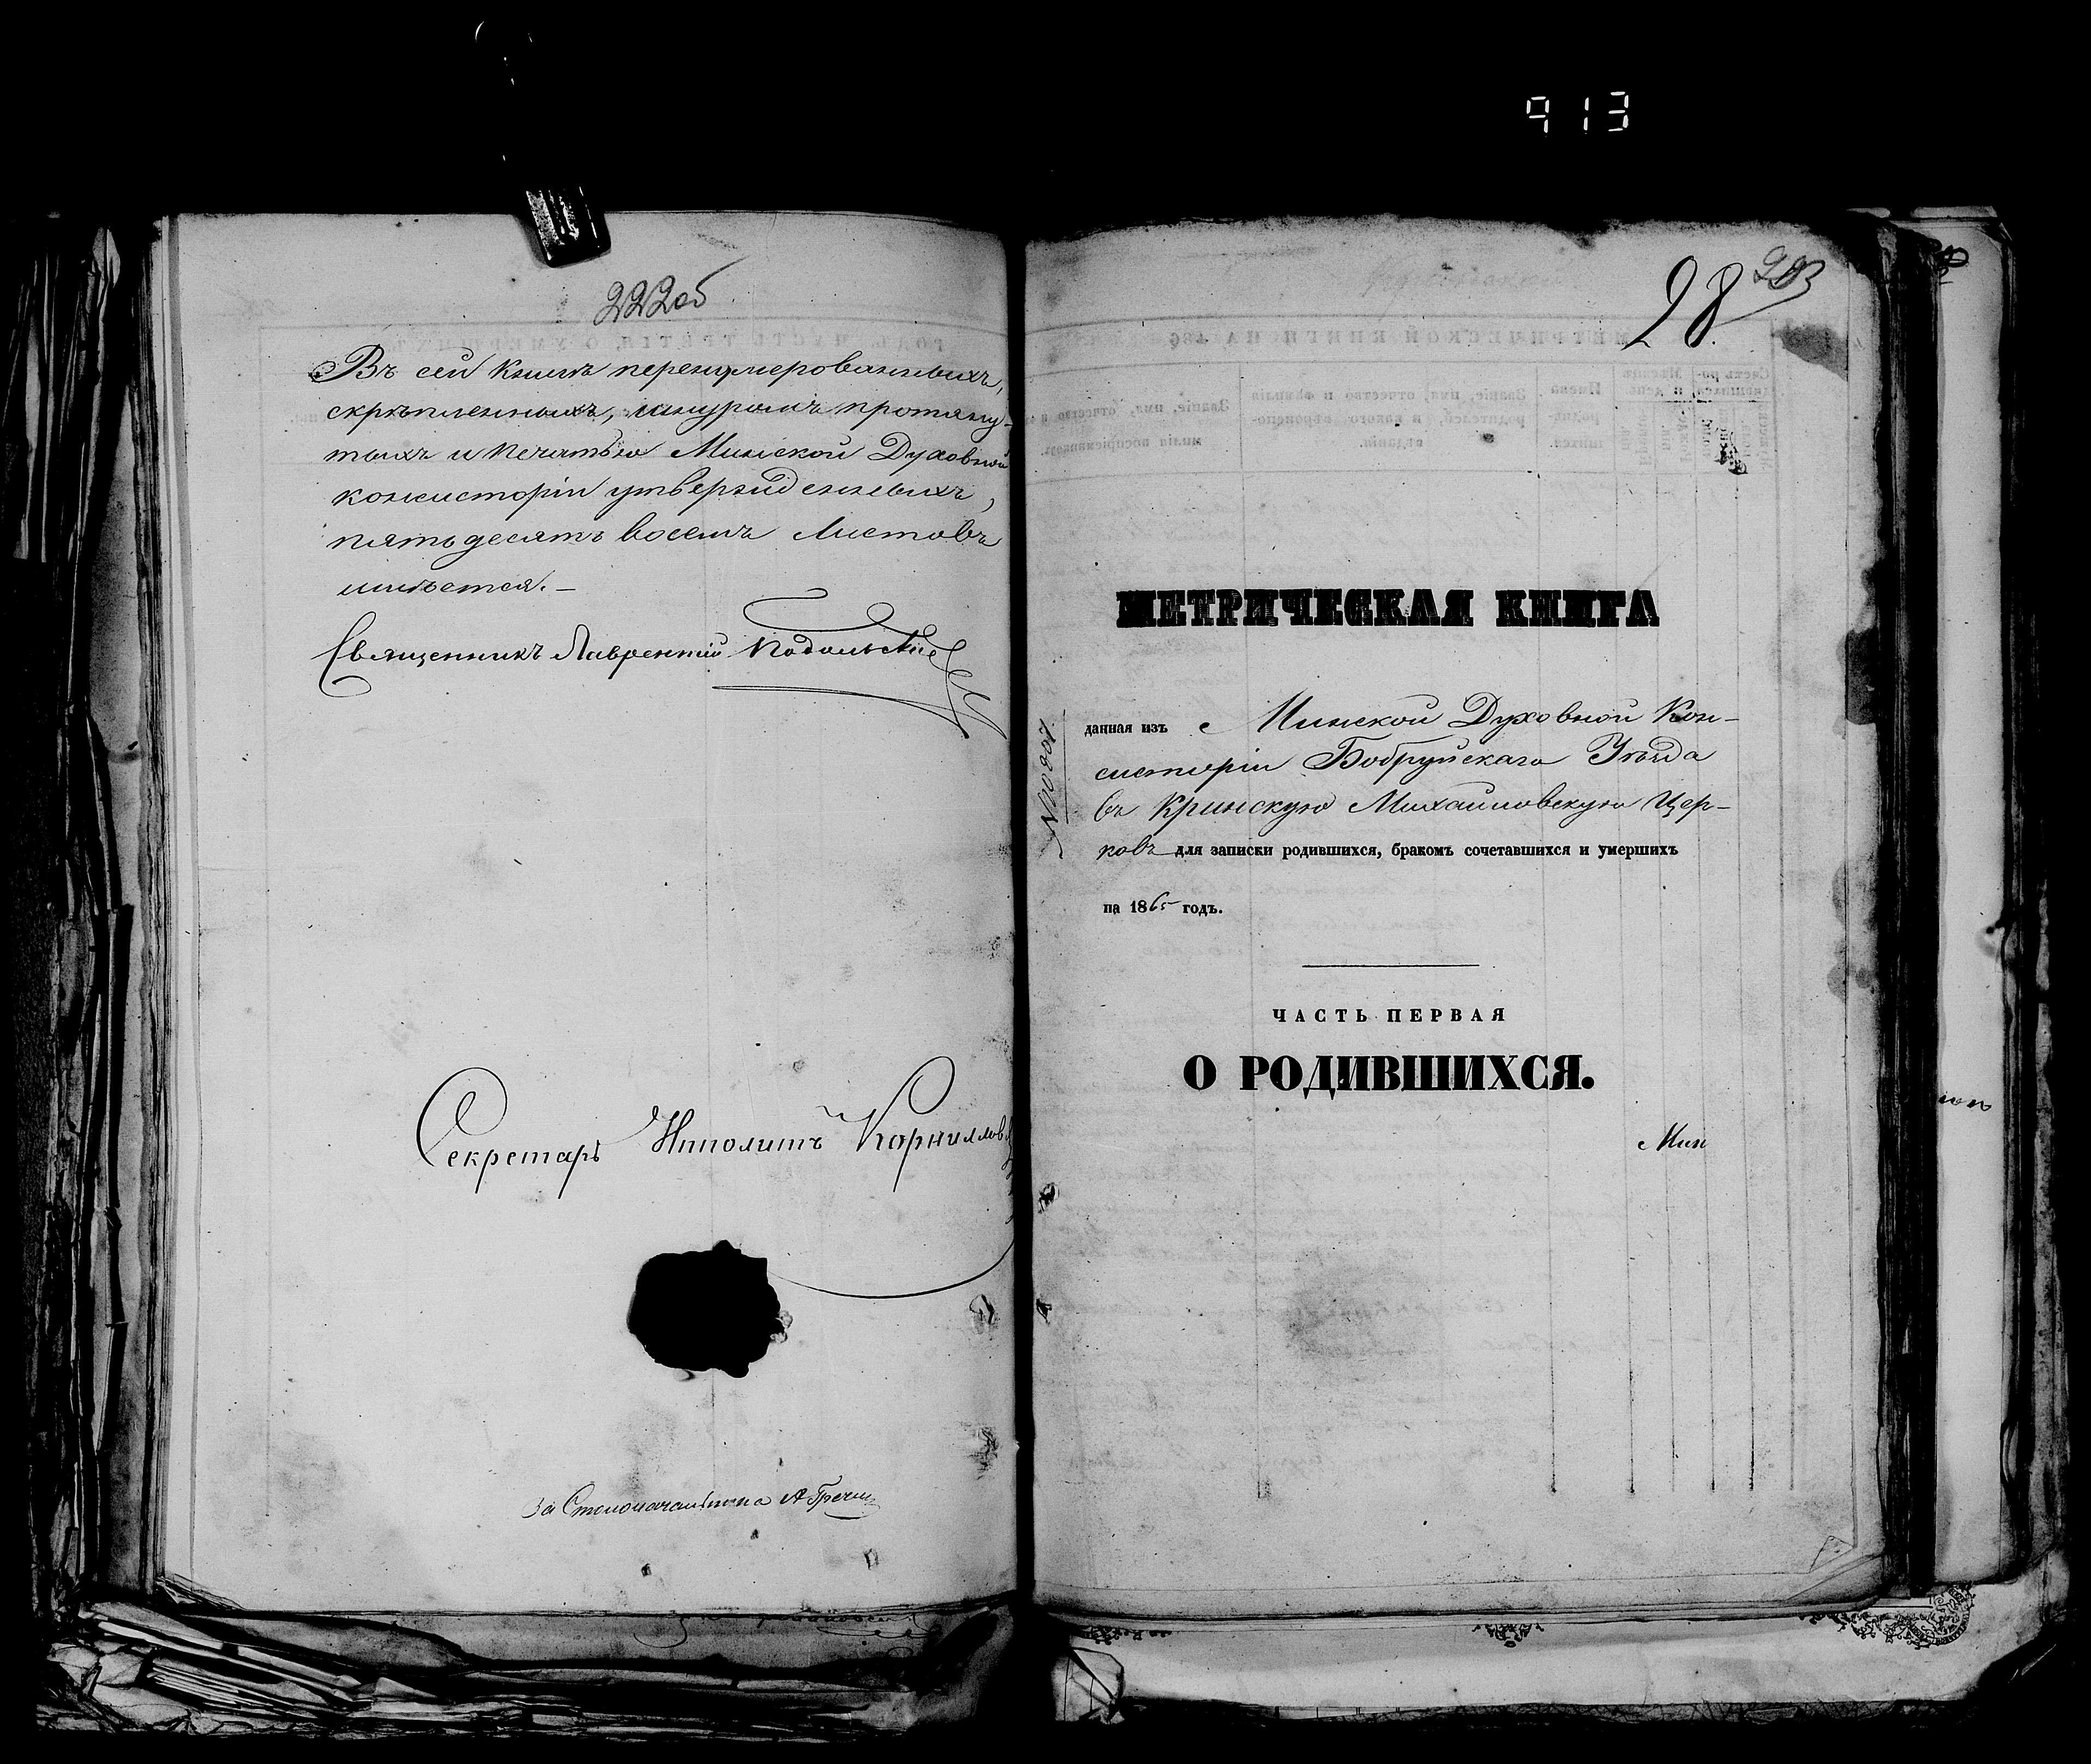 913
222 об
Въ сей книгѣ перенумерованныхъ,
скрѣпленныхъ, шнуромъ протяну-
тыхъ и печатью Минской Духовной
консисторіи утвержденныхъ,
пятьдесятъ восемъ листовъ
имѣется.—
Священникъ Лаврентій Подольскій
Секретарь Ипполитъ Корнилов
За Столоначальника А Гречин
28. 223
МЕТРИЧЕСКАЯ КНИГА
данная изъ Минской Духовной Кон-
систоріи Бобруйскаго Уѣзда
въ Кринскую Михайловскую Цер-
ковь для записки родившихся, бракомъ сочетавшихся и умершихъ
на 1865 годъ.
ЧАСТЬ ПЕРВАЯ
О РОДИВШИХСЯ.
Мин